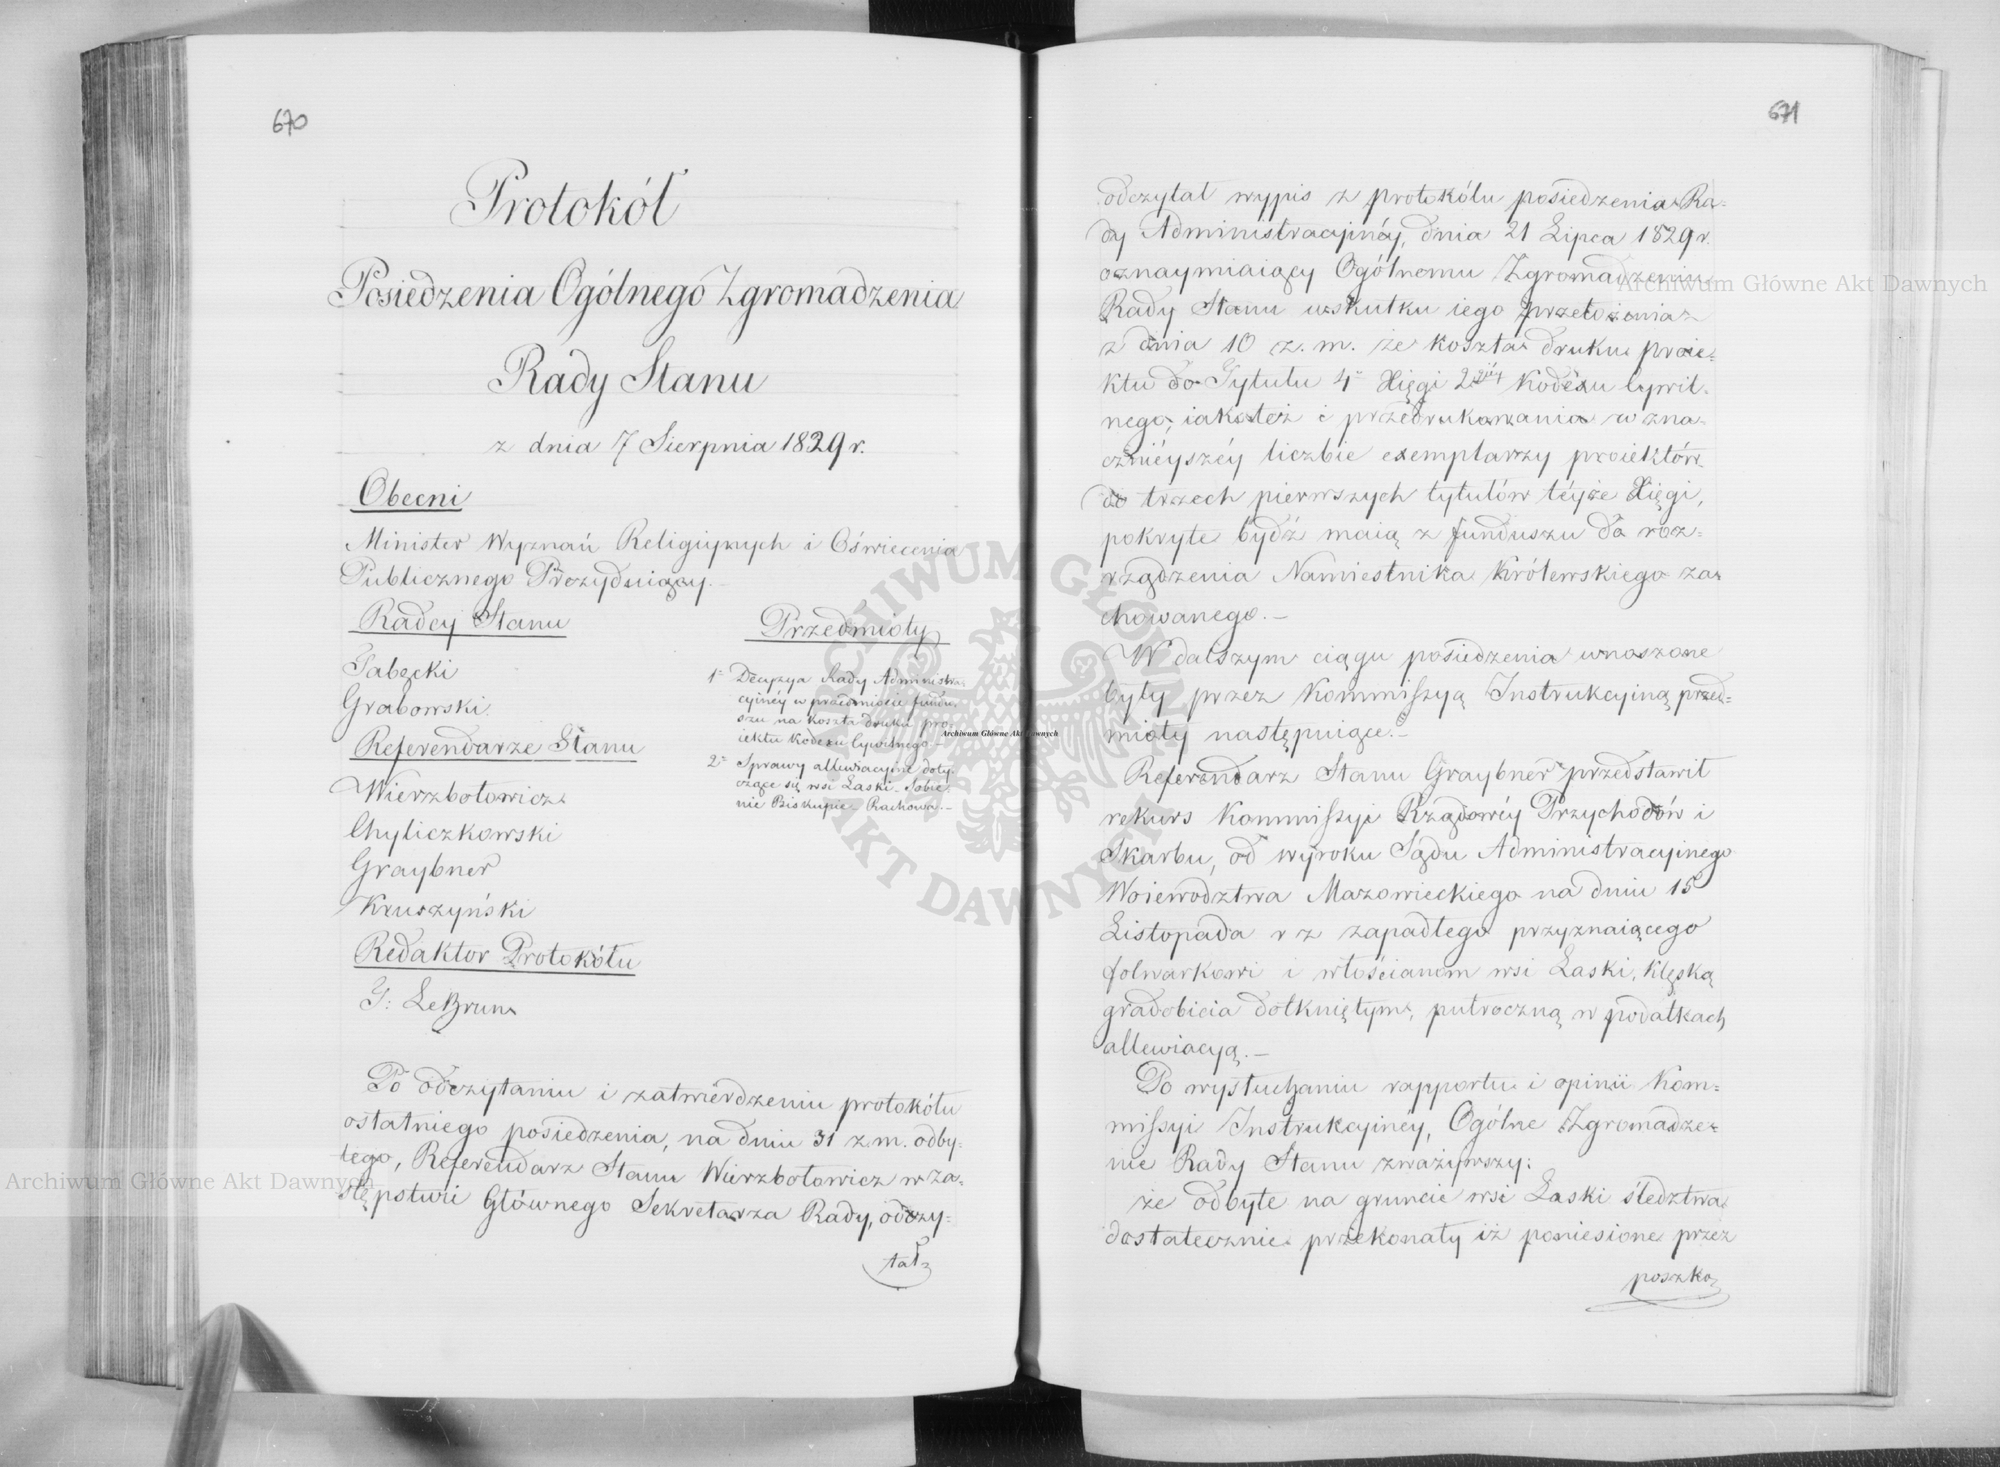 670
Protokół
Posiedzenia Ogólnego Zgromadzenia
Rady Stanu
z dnia 7 Sierpnia 1829 r.
Obecni
Minister Wyznań Religiynych i Oświecenia
Publicznego Prezyduiący.
Radcy Stanu
Tabęcki
Grabowski.
Referendarze Stanu
Wierzbołowicz
Chyliczkowski
Graybner
Kruszyński
Redaktor Protokółu
G: LeBrun
Przedmioty
1° Decyzya Rady Administra-
cyinéy w przedmiocie fundu-
szu na koszta druku pro-
iektu Kodexu Cywilnego.-
2° Sprawy allewiacyine doty-
czące się wsi Łaski - Sobie-
nie Biskupie - Rachowa.-
Po odczytaniu i zatwiérdzeniu protokółu
ostatniego posiedzenia, na dniu 31 z.m. odby-
tego, Referendarz Stanu Wierzbołowicz w za-
stępstwie Głównego Sekretarza Rady, odczy-
tał
671
odczytał wypis z protokółu posiedzenia Ra-
dy Administracyinéy, dnia 21 Lipca 1829 r.
oznaymiaiący Ogólnemu Zgromadzeniu
Rady Stanu wskutku iego przełożenia
z dnia 10 z.m. że koszta druku proie-
ktu do Tytułu 4° Xięgi 2giéy Kodexu Cywil-
nego, iakoteż i przedrukowania w zna-
cznieyszéy liczbie exemplarzy proiektów
do trzech pierwszych tytułów téyże Xięgi,
pokryte bydź maią z funduszu do roz-
rządzenia Namiestnika Królewskiego za-
chowanego.-
W dalszym ciągu posiedzenia wnoszone
były przez Kommissyą Instrukcyiną przed-
mioty następuiące.-
Referendarz Stanu Graybner przedstawił
rekurs Kommissyi Rządowéy Przychodów i
Skarbu, od wyroku Sądu Administracyinego
Woiewództwa Mazowieckiego na dniu 15
Listopada r z zapadłego przyznaiącego
folwarkowi i włościanom wsi Łaski, klęską
gradobicia dotkniętym, półroczną w podatkach
allewiacyą.-
Po wysłuchaniu rapportu i opinii Kom-
missyi Instrukcyinéy, Ogólne Zgromadze-
nie Rady Stanu zważywszy:
że odbyte na gruncie wsi Łaski śledztwa
dostatecznie przekonały iż poniesione przez
poszko
Archiwum Główne Akt Dawnych
Archiwum Główne Akt Dawnych
Archiwum Główne Akt Dawnych
ARCHIWUM GŁÓWNE AKT DAWNYCH